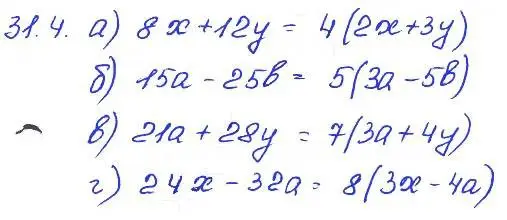 31.4. а) 8x+12y = 4(2x+3y)
б) 15a - 25b = 5(3a - 5b)
в) 21a + 28y = 7(3a + 4y)
г) 24x - 32a = 8(3x - 4a)